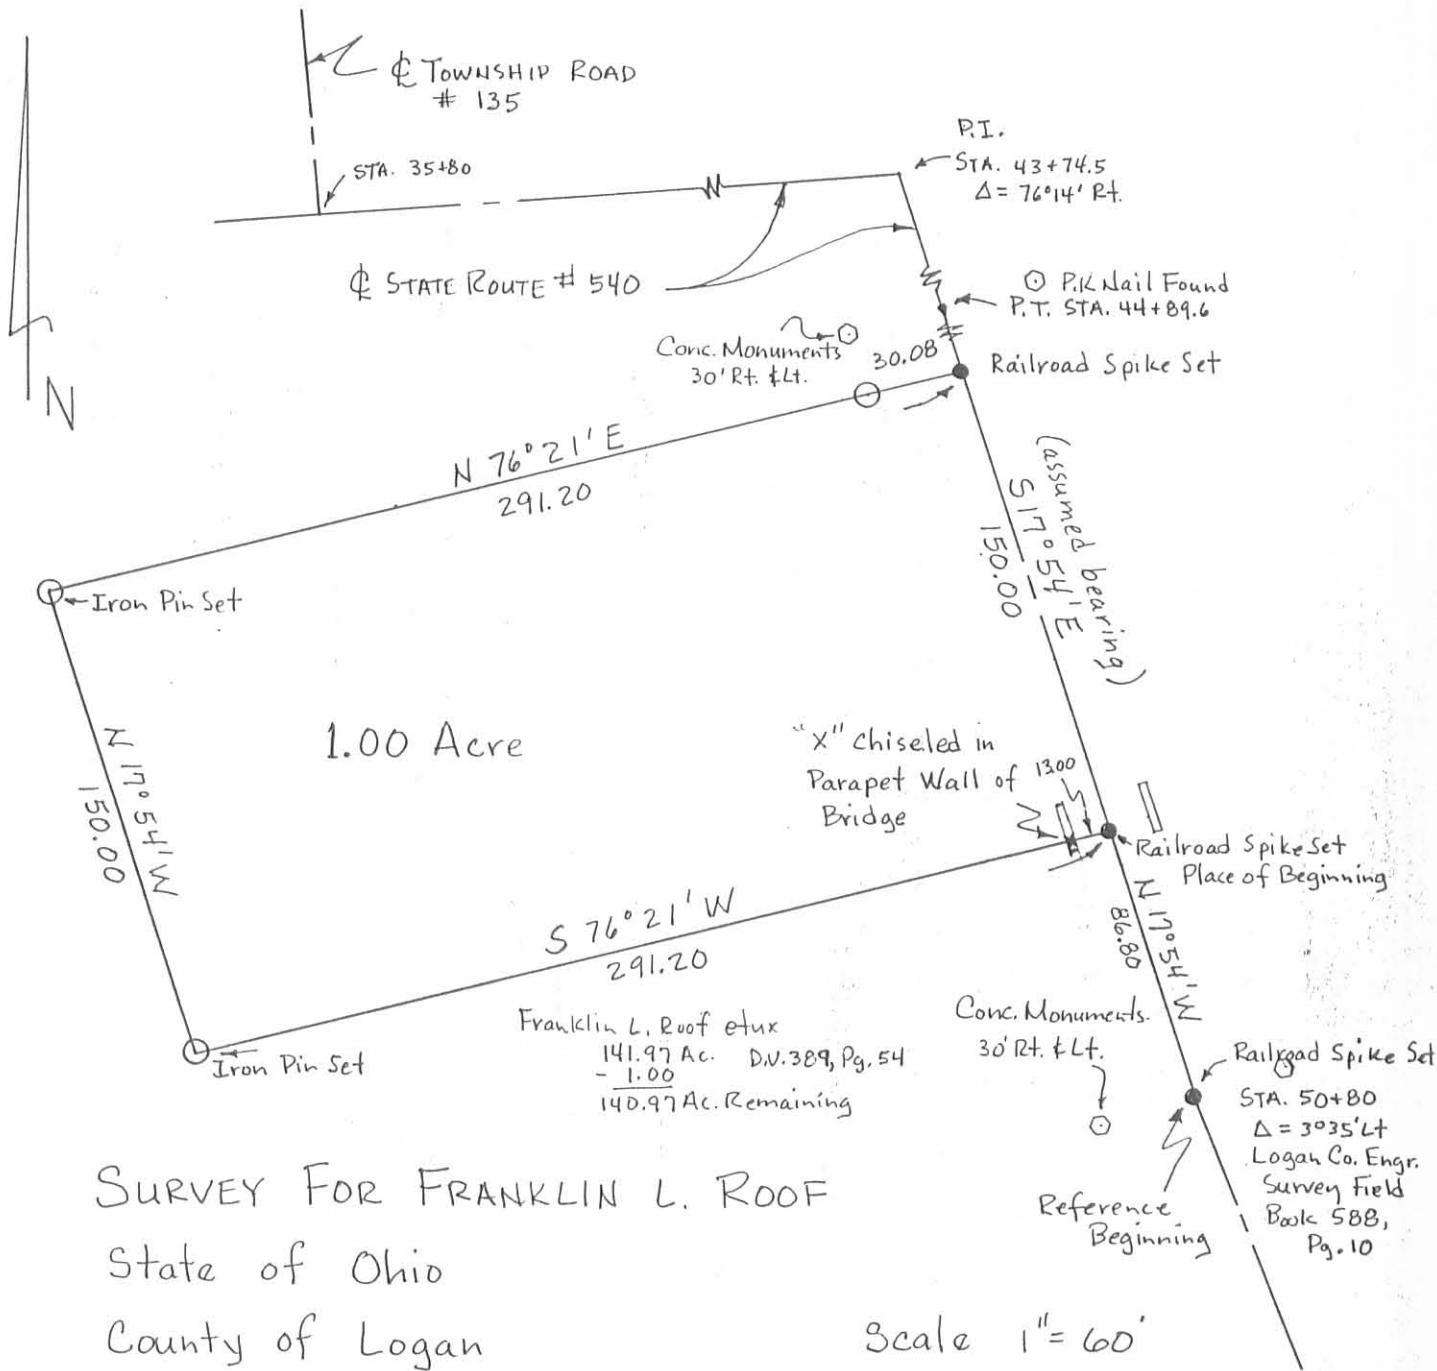 ℄ TOWNSHIP ROAD
# 135
STA. 35+80
P.I.
STA. 43+74.5
Δ = 76°14' Rt.
℄ STATE ROUTE # 540
P.K Nail Found
P.T. STA. 44+89.6
Conc. Monuments
30' Rt. & Lt.
30.08
Railroad Spike Set
N
N 76° 21' E
291.20
(assumed bearing)
S 17° 54' E
150.00
Iron Pin Set
1.00 Acre
N 17° 54' W
150.00
"X" chiseled in
Parapet Wall of
Bridge
13.00
Railroad Spike Set
Place of Beginning
N 17° 54' W
86.80
S 76° 21' W
291.20
Iron Pin Set
Franklin L. Roof etux
141.97 Ac. D.V. 389, Pg. 54
- 1.00
140.97 Ac. Remaining
Conc. Monuments.
30' Rt. & Lt.
Railroad Spike Set
STA. 50+80
Δ = 3°35' Lt
Logan Co. Engr.
Survey Field
Book 588,
Pg. 10
Reference
Beginning
SURVEY FOR FRANKLIN L. ROOF
State of Ohio
County of Logan
Scale 1" = 60'